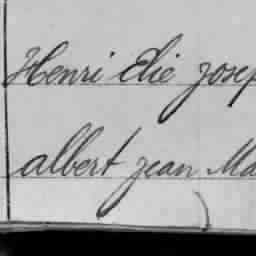 Henri Elie Josep
albert jean Ma